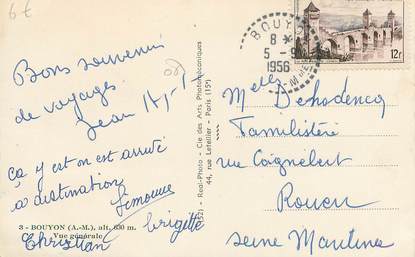 6€
Bons souvenirs
de voyages
Jean
ça y est on est arrivé
à destination
Simonne
Christian Brigitte
3 - BOUYON (A.-M.), alt. 630 m.
Vue générale
Real-Photo - Cie des Arts Photomécaniques
44, rue Letellier - Paris (15e)
BOUYON
8
5-
1956
12f
Melles Dehodencq
Familistère
rue Coignebert
Rouen
Seine Maritime